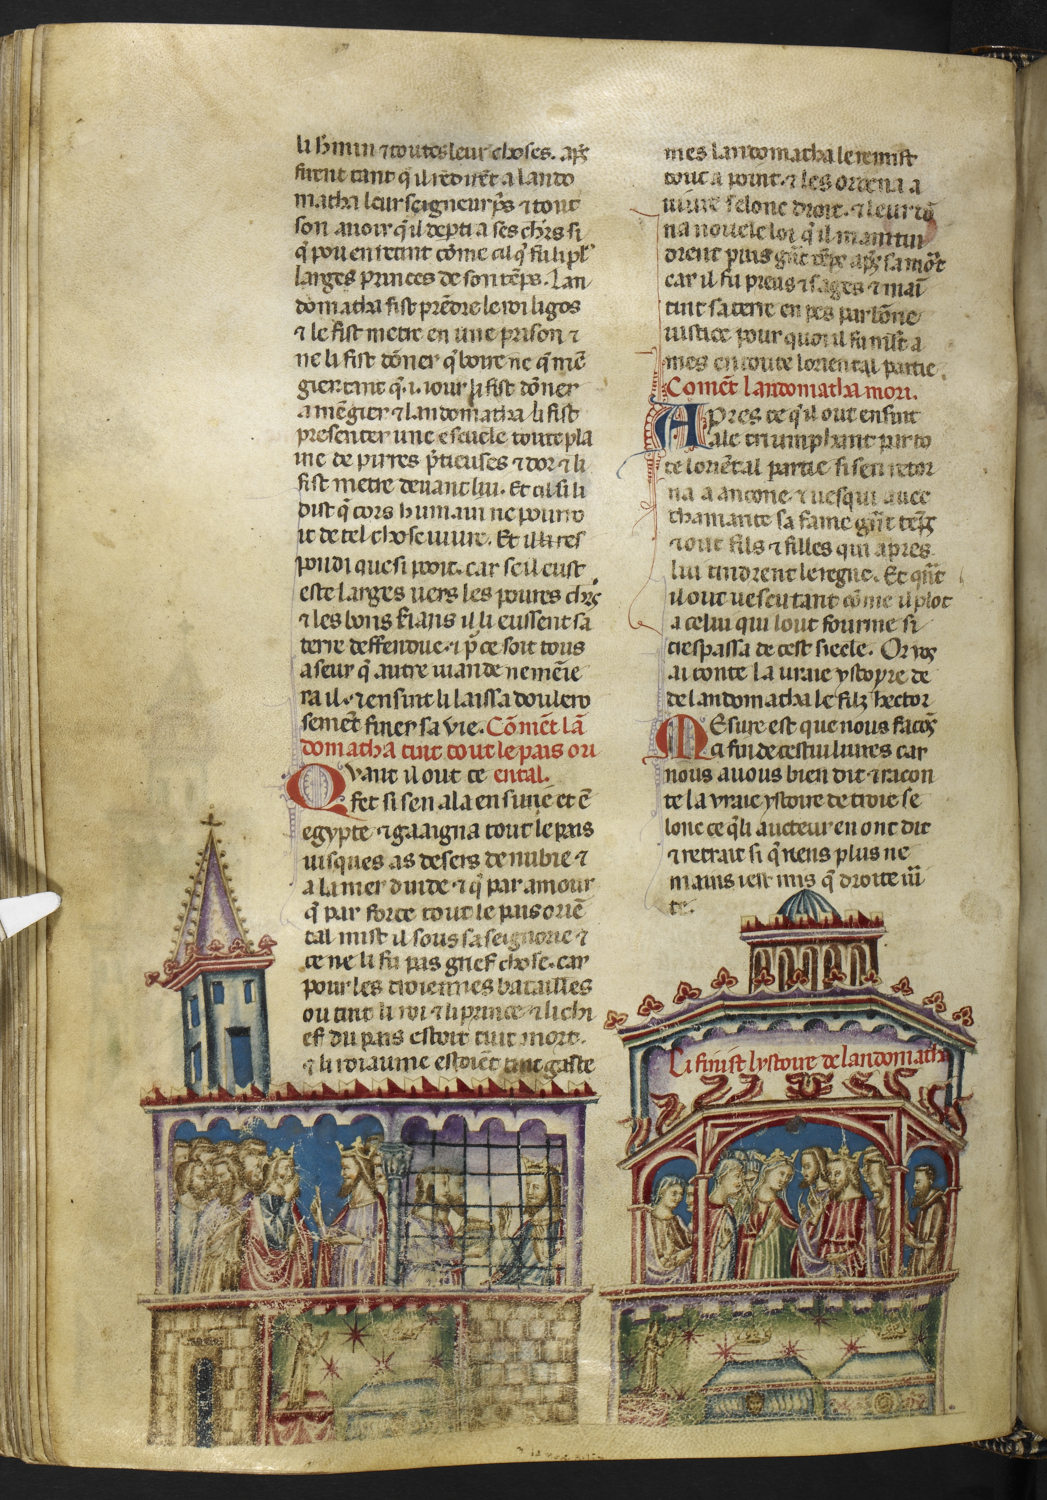 li hmin ⁊ toutes leur choses. apͤs
furent tant q̄ il rēdirēt a lando
matha leur seigneur p̄s ⁊ tout
son auoir q̄ il depti a ses chr̄s si
q̄ pou en retint cōme cil q̄ fu li pl'
larges princes de son tēps. Lan
domatha fist prēdre le roi ligos
⁊ le fist metre en une prison ⁊
ne li fist dōner q̄ boire ne q̄ mē
gier tant q̄ .i. iour li fist dōner
a mēgier ⁊ landomatha li fist
presenter une escuele toute plai
ne de pirres p̄tieuses ⁊ dor ⁊ li
fist metre deuant lui. Et cil si li
dist q̄ cors humain ne pouro
it de tel chose uiure. Et il li res
pondi que si pooit. car se il eust
este larges uers les poures chr̄s
⁊ les bons il li eussent sa
terre deffendue. ⁊ p̄ ce soit tous
aseur q̄ autre uiande ne mēie
ra il. ⁊ ensint li laissa doulero
semēt finer sa vie. Cōmēt lā
domatha tint tout le pais ori
Quant il out ce ental.
fet si sen ala en surie et ē
egypte ⁊ gaaigna tout le pais
iusques as desers de nubie ⁊
a la mer dinde ⁊ q̄ par amour
q̄ par force tout le pais oriē
tal mist il sous sa seignorie ⁊
ce ne li fu pas grief chose. car
pour les troiennes batailles
ou tuit li roi ⁊ li prince ⁊ li chi
ef du pais estoit tuit mort.
⁊ li roiaume estoiēt tuit gaste
mes landomatha le remist
tout a point. ⁊ les ordena a
uiure selonc droit. ⁊ leur dō
na nouele loi q̄ il maintin
drent puis gn̄t tēps apͤs sa mort
car il fu preus ⁊ sages ⁊ mai
tint sa terre en pes par bōne
iustice pour quoi il fu mlt a
mes en toute loriental partie.
Comēt landomatha mori.
Apres ce q̄ il out ensint
ale triumphant par to
te loriētal partie si sen retor
na a ancone. ⁊ uesqui auec
thamante sa fame gn̄t tēps
⁊ out fils ⁊ filles qui apres
lui tindrent le regne. Et qn̄t
il out uescu tant cōme il plot
a celui qui lout fourme si
trespassa de cest siecle. Or vos
ai conte la uraie ystoyre de
de landomatha le filz hector
Mesure est que nous facōs
ci fin de cestui liures car
nous auons bien dit ⁊ racon
te la vraie ystoire de troie se
lonc ce q̄ li aucteur en ont dit
⁊ retrait si q̄ riens plus ne
mains iest mis q̄ droite ui
te.
Ci finist lystoire de landomatha